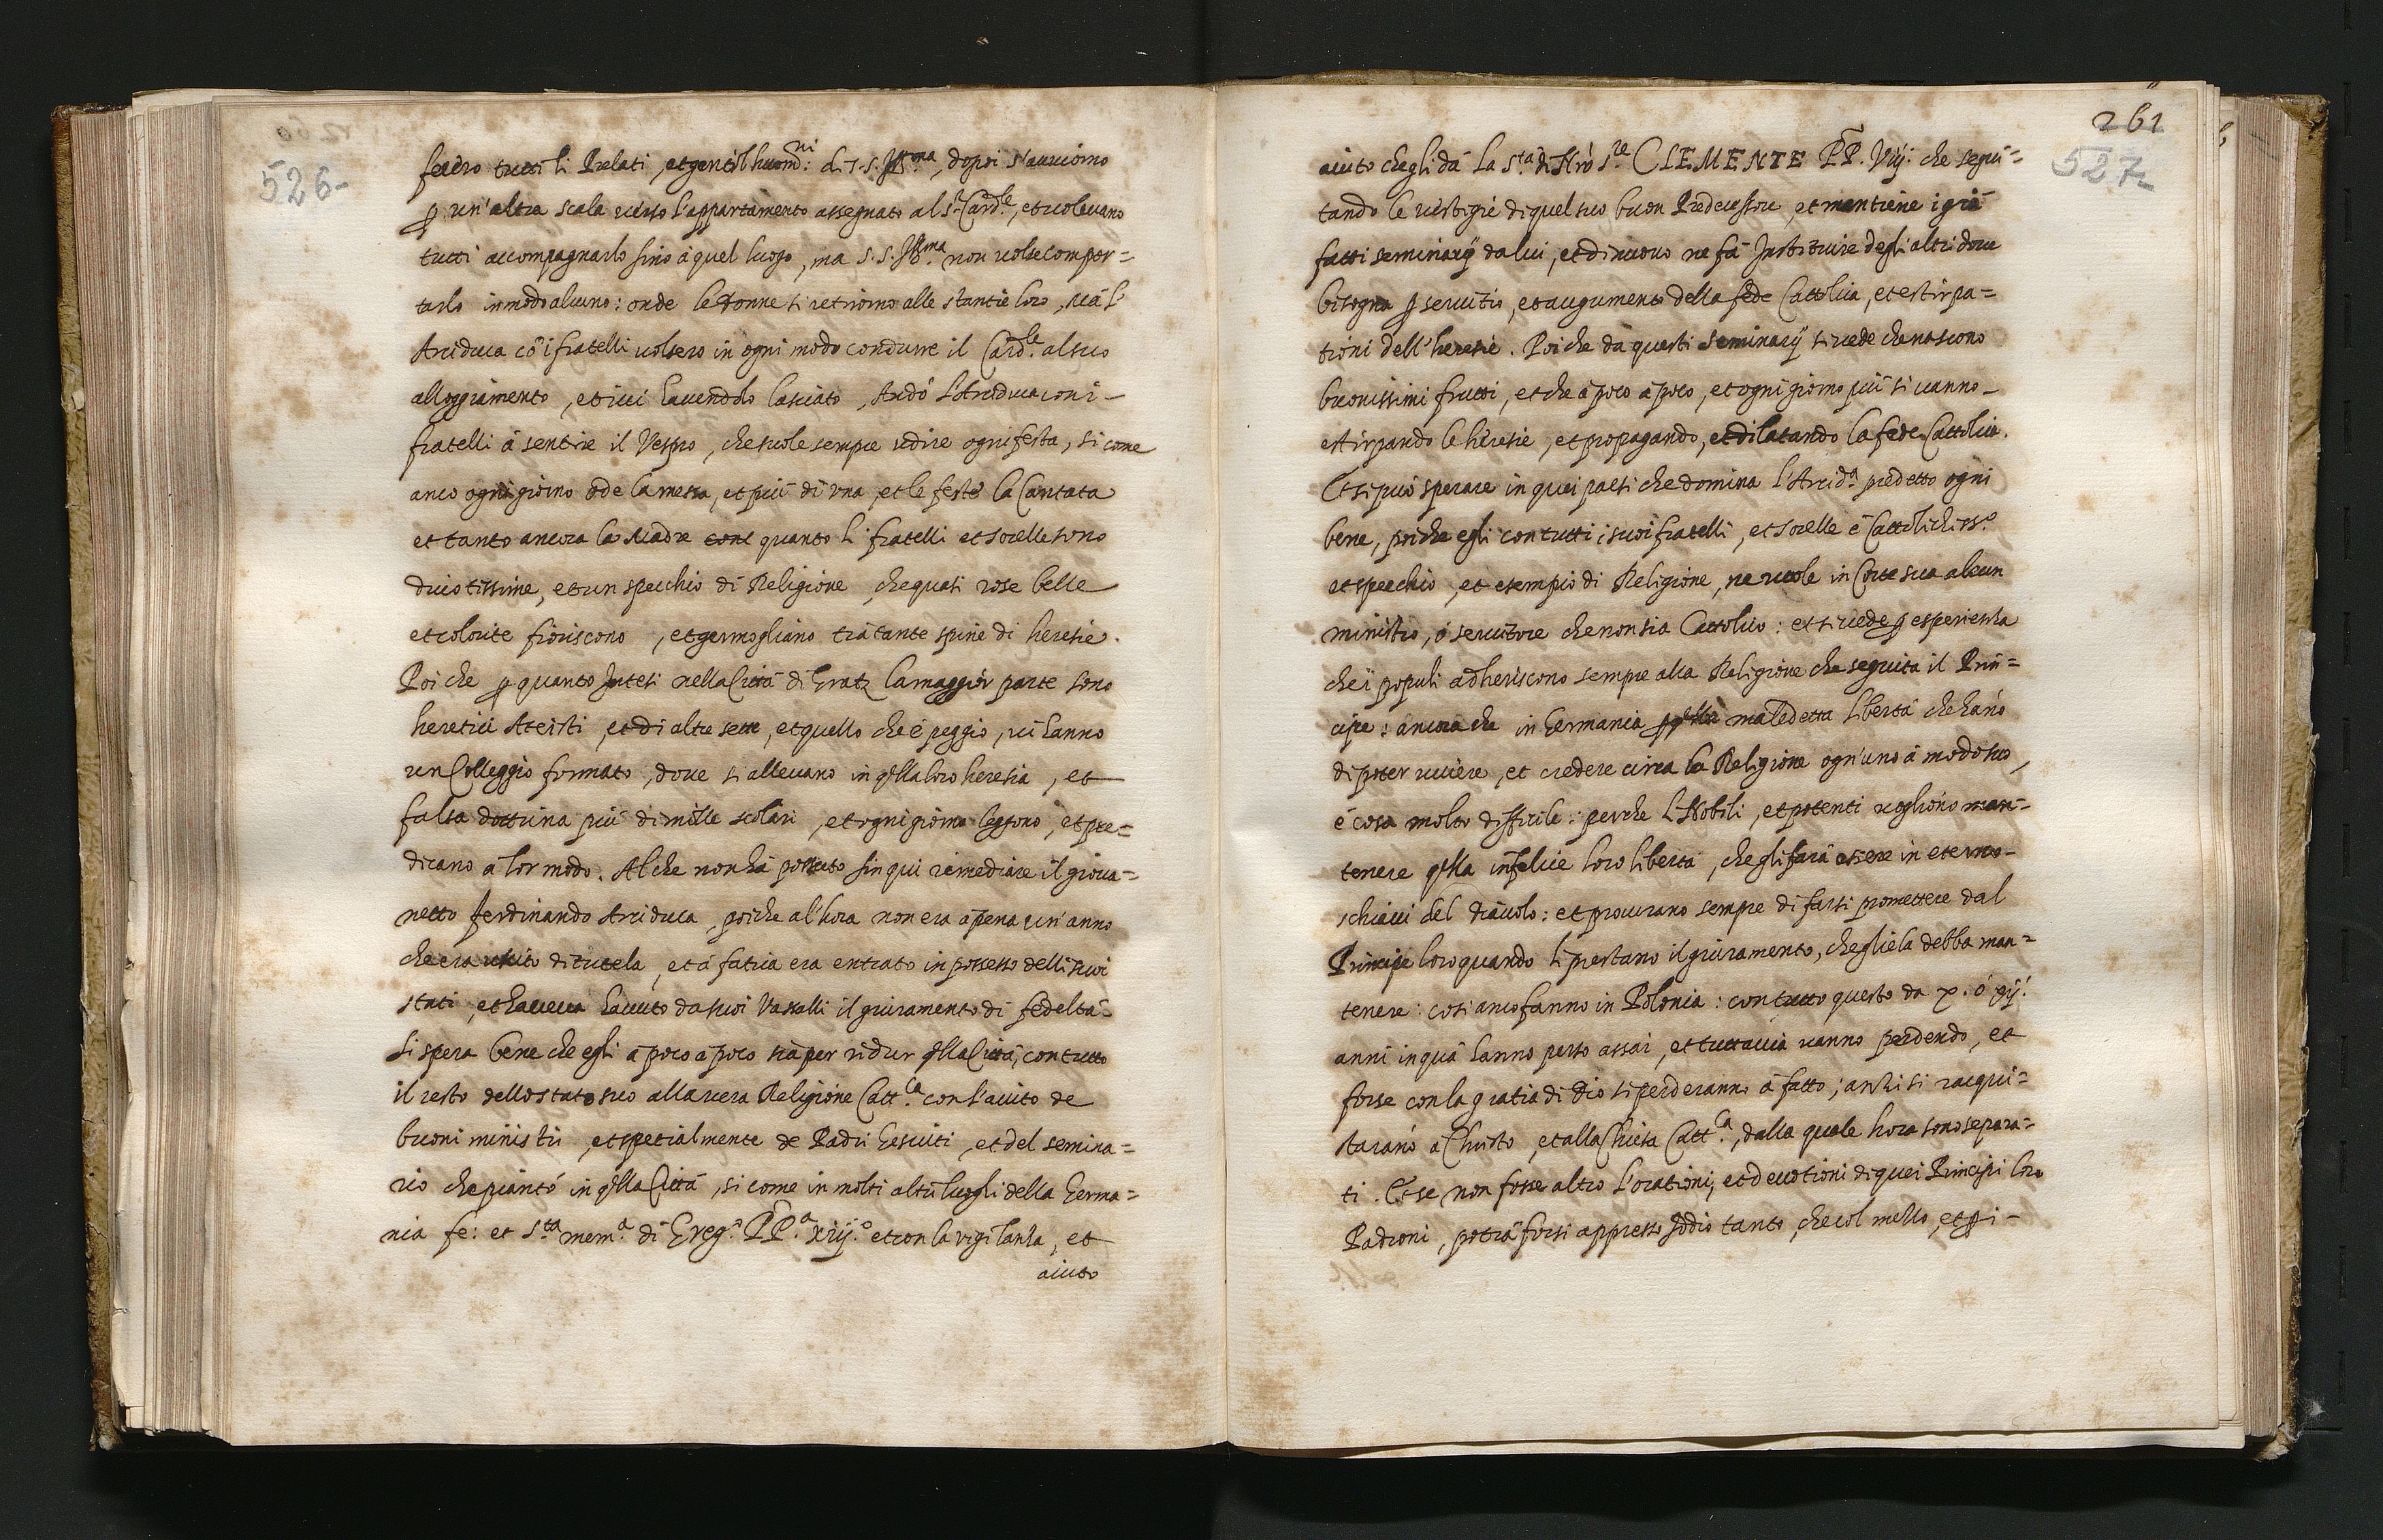 526
fecero tutti li Prelati, et gentilhuom:ni di S. S. Ill.ma, dopoi s'auuiorno
ꝑ un'altra scala uerso l'appartamento assegnato al s.r Card.le, et uoleuano
tutti accompagnarlo sino à quel luogo, ma S. S. Ill.ma non uolse compor=
tarlo in modo alcuno: onde le donne si retirorno alle stantie loro, mà l'
Arciduca cō i fratelli uolsero in ogni modo condurre il Card.le al suo
alloggiamento, et iui hauendolo lasciato, Andò l'Arciduca con i-
fratelli à sentire il Vespro, che suole sempre udire ogni festa, si come
anco ogni giorno ode la messa, et più di una et le feste la Cantata
et tanto ancora la Madre quanto li fratelli et sorelle sono
diuotissime, et un specchio di Religione, che quasi rose belle
et colorite fioriscono, et germogliano trà tante spine di heresie.
Poi che ꝑ quanto Intesi nella Città di Gratz la maggior parte sono
heretici Ateisti, et di altre sette, et quello che è peggio, ui hanno
un Colleggio formato, doue si alleuano in q̃lla loro heresia, et
falsa dottrina più di mille scolari, et ogni giorno leggono, et pre=
dicano à lor modo. Al che non hà possuto sin qui remediare il gioua=
netto ferdinando Arciduca, poiche al'hora non era à pena un'anno
che era uscito di tutela, et à fatica era entrato in possesso delli suoi
stati, et haueua hauuto da suoi Vassalli il giuramento di fedeltà-
si spera bene che egli à poco à poco sia per ridur q̃lla Città, con tutto
il resto dello stato suo alla uera Religione Catt.ca con l'aiuto de
buoni ministri, et spetialmente de Padri Gesuiti, et del semina=
rio che piantò in q̃lla Città, si come in molti altri luoghi della Germa=
nia fe: et S.ta mem.a di Greg.o PP.a xiij.o et con la vigilanza, et
aiuto
261
527
aiuto che gli dà la S.tà di Nr̃o S.re CLEMENTE PP. Viij: che segui=
tando le uestigie di quel suo buon Predecessore, et mantiene i già
fatti seminarij da lui, et di nuouo ne fà Instituire degli altri doue
bisogna ꝑ seruitio, et augumento della fede Cattolica, et estirpa=
tioni dell'heresie. Poi che da questi seminarij si uede che nascono
buonissimi frutti, et che à poco à poco, et ogni giorno più si uanno-
estirpando le heresie, et propagando, et dilatando la fede Cattolica.
Et si può sperare in quei paesi che domina l'Arcid.a predetto ogni
bene, poiche egli con tutti i suoi fratelli, et sorelle è Cattolichiss.o
et specchio, et esempio di Religione, ne uuole in Corte sua alcun
ministro, ò seruitore che non sia Cattolico: et si uede ꝑ esperienza
che i populi adheriscono sempre alla Religione che seguita il Prin=
cipe: ancora che in Germania ꝑ q̃lla maledetta libertà che hano
di poter uiuere, et credere circa la Religione ogn'uno à modo suo,
è cosa molto difficile: perche li Nobili, et potenti uogliono man=
tenere q̃lla infelice loro libertà, che gli farà essere in eterno-
schiaui del diauolo: et procurano sempre di farsi promettere dal
Principe loro quando li prestano il giuramento, che gliela debba man=
tenere: così anco fanno in Polonia: con tutto questo da x. ò xij.
anni in quà hanno perso assai, et tuttauia uanno perdendo, et
forse con la gratia di Dio si perderanno à fatto; anzi si racqui=
starano à Christo, et alla Chiesa Catt.ca, dalla quale hora sono separa=
ti. Et se non fosse altro l'orationi, et deuotioni di quei Principi loro
Padroni, potrà forsi appresso Iddio tanto, che col mezzo, et ꝑ i-